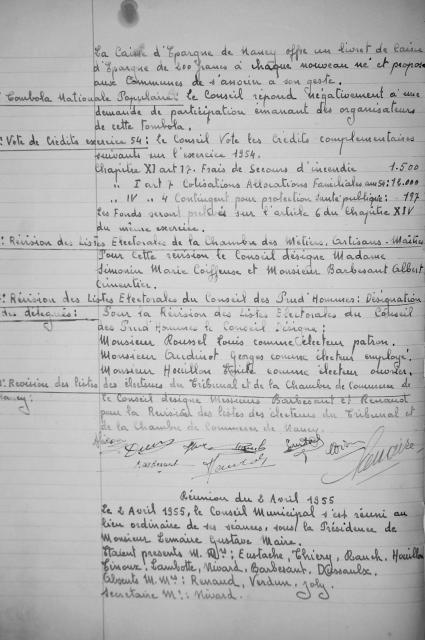 La Caisse d'Epargne de Nancy offre un livret de Caisse
d'Epargne de 200 francs à chaque nouveau né et propose
aux Communes de s'associer à son geste.
Tombola Nationale Populaire: Le Conseil répond négativement à une
demande de participation émanant des organisateurs
de cette tombola.
Vote de Crédits exercice 54: Le Conseil Vote les Crédits complémentaires
suivants sur l'exercice 1954.
Chapitre XI art 17. Frais de Secours d'incendie 1.500
" I art 7 Cotisations Allocations Familiales am 54: 12.000
" IV " 4 Contingent pour protection santé publique: 197
Les Fonds seront prélevés sur l'article 6 du Chapitre XIV
du même exercice.
Révision des Listes Electorales de la Chambre des Métiers, Artisans - Maîtres
Pour cette révision le Conseil désigne Madame
Simonin Marie Coiffeuse et Monsieur Barbesant Albert
Cimentier.
Révision des Listes Electorales du Conseil des Prud'Hommes: Désignation
des délégués: Pour la Révision des Listes Electorales du Conseil
des Prud'Hommes le Conseil désigne:
Monsieur Roussel Louis comme électeur patron.
Monsieur Audinot Georges comme électeur employé.
Monsieur Houillon comme électeur ouvrier.
Revision des listes des électeurs du Tribunal et de la Chambre de Commerce de
Nancy: le Conseil désigne Messieurs Barbesant et Renaud
pour la Révision des listes des électeurs du Tribunal et
de la Chambre de Commerce de Nancy.
Barbesant
Lemaire
Réunion du 2 Avril 1955
Le 2 Avril 1955, le Conseil Municipal s'est réuni au
lieu ordinaire de ses séances, sous la Présidence de
Monsieur Lemaire Gustave Maire.
Etaient présents M.Mrs: Eustache, Thiery, Rauch, Houillon
Lambotte, Nivard, Barbesant, Dussaulx.
Absents M.Mrs: Renaud, Verdun, Joly.
Secrétaire Mr: Nivard.